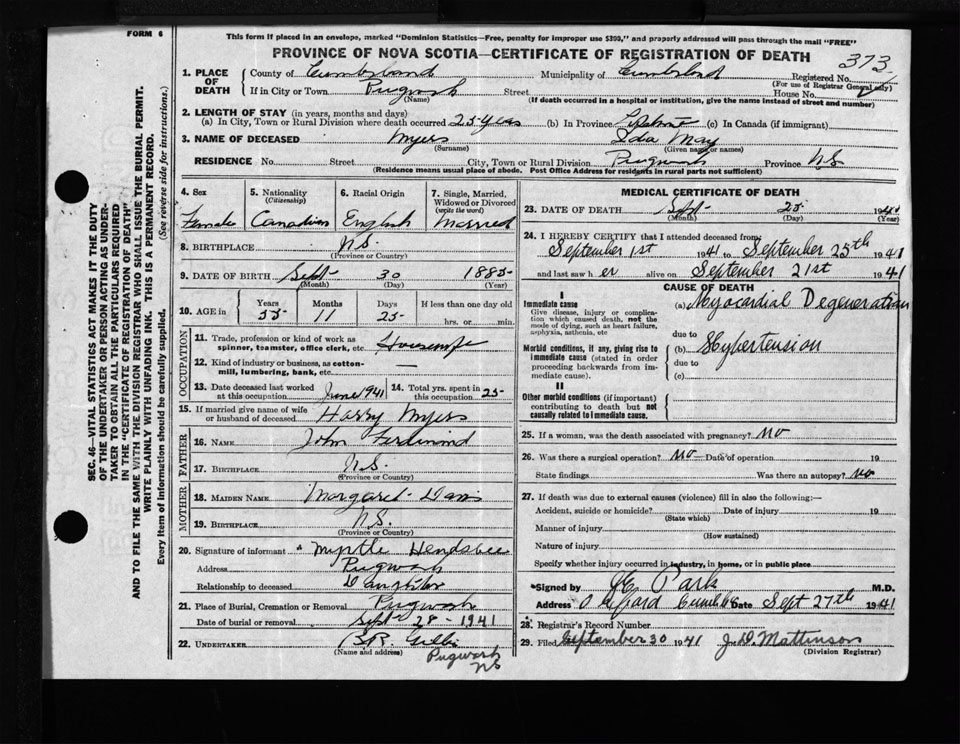 FORM 6
This form if placed in an envelope, marked "Dominion Statistics—Free, penalty for improper use $300," and properly addressed will pass through the mail "FREE"
PROVINCE OF NOVA SCOTIA—CERTIFICATE OF REGISTRATION OF DEATH
373
1. PLACE OF DEATH
County of Cumberland Municipality of Cumberland Registered No.
(For use of Registrar General only)
If in City or Town Pugwash Street House No.
(Name) (If death occurred in a hospital or institution, give the name instead of street and number)
2. LENGTH OF STAY (in years, months and days)
(a) In City, Town or Rural Division where death occurred 25 years (b) In Province (c) In Canada (if immigrant)
3. NAME OF DECEASED Myers Ida May
(Surname) (Given name or names)
RESIDENCE No. Street City, Town or Rural Division Pugwash Province N.S.
(Residence means usual place of abode. Post Office Address for residents in rural parts not sufficient)
4. Sex Female
5. Nationality (Citizenship) Canadian
6. Racial Origin English
7. Single, Married, Widowed or Divorced (write the word) Married
8. BIRTHPLACE N.S.
(Province or Country)
9. DATE OF BIRTH Sept 30 1885
(Month) (Day) (Year)
10. AGE in Years Months Days If less than one day old
55 11 25 hrs. or min.
OCCUPATION
11. Trade, profession or kind of work as spinner, teamster, office clerk, etc. Housewife
12. Kind of industry or business, as cotton-mill, lumbering, bank, etc. —
13. Date deceased last worked at this occupation June 1941
14. Total yrs. spent in this occupation 25
15. If married give name of wife or husband of deceased Harry Myers
FATHER
16. NAME John Ferdinand
17. BIRTHPLACE N.S.
(Province or Country)
MOTHER
18. MAIDEN NAME Margaret Davis
19. BIRTHPLACE N.S.
(Province or Country)
20. Signature of informant Myrtle Hendsbee
Address Pugwash
Relationship to deceased Daughter
21. Place of Burial, Cremation or Removal Pugwash
Date of burial or removal Sept 28 - 1941
22. UNDERTAKER B.R.
(Name and address) Pugwash
NS
MEDICAL CERTIFICATE OF DEATH
23. DATE OF DEATH Sept 25 1941
(Month) (Day) (Year)
24. I HEREBY CERTIFY that I attended deceased from
September 1st 1941 to September 25th 1941
and last saw her alive on September 21st 1941
CAUSE OF DEATH
I
Immediate cause
Give disease, injury or complication which caused death, not the mode of dying, such as heart failure, asphyxia, asthenia, etc
(a) Myocardial Degeneration
due to
Morbid conditions, if any, giving rise to immediate cause (stated in order proceeding backwards from immediate cause).
(b) Hypertension
due to
(c)
II
Other morbid conditions (if important) contributing to death but not causally related to immediate cause.
25. If a woman, was the death associated with pregnancy? No
26. Was there a surgical operation? No Date of operation 19
State findings Was there an autopsy? No
27. If death was due to external causes (violence) fill in also the following:—
Accident, suicide or homicide? Date of injury 19
(State which)
Manner of injury
(How sustained)
Nature of injury
Specify whether injury occurred in industry, in home, or in public place
Signed by Park M.D.
Address Oxford Date Sept 27th 1941
28. Registrar's Record Number
29. Filed September 30 1941 J.D. Mattinson
(Division Registrar)
SEC. 46—VITAL STATISTICS ACT MAKES IT THE DUTY
OF THE UNDERTAKER OR PERSON ACTING AS UNDER-
TAKER TO OBTAIN ALL THE PARTICULARS REQUIRED
IN THE "CERTIFICATE OF REGISTRATION OF DEATH"
AND TO FILE THE SAME WITH THE DIVISION REGISTRAR WHO SHALL ISSUE THE BURIAL PERMIT.
WRITE PLAINLY WITH UNFADING INK. THIS IS A PERMANENT RECORD.
Every item of information should be carefully supplied. (See reverse side for instructions.)